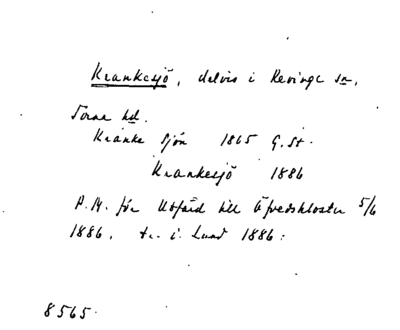 Krankesjö, delvis i Revinge sn,
Torna hd.
Kranke Sjön 1865 G.St.
Krankesjö 1886
P.M. för Utfärd till Öfvedskloster 5/6
1886, tr. i Lund 1886:
8565.